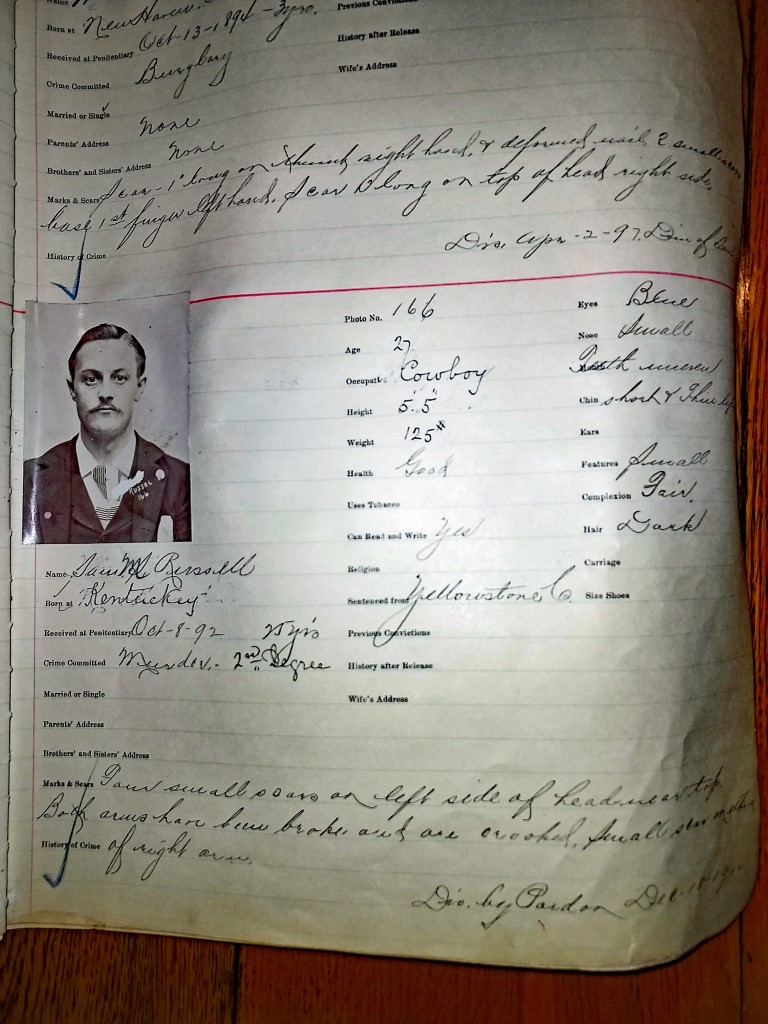 Name
Born at New Haven.
Received at Penitentiary Oct-13-1894 - 3 yrs.
Crime Committed Burglary
Married or Single
Parents' Address none
Brothers' and Sisters' Address none
Marks & Scars Scar - 1" long on thumb right hand, & deformed nail, 2 small scars
base 1st finger left hand. Scar long on top of head right side.
Dis. Apr-2-97.
History of Crime
Previous Convictions
History after Release
Wife's Address
RUSSEL
166
Name, Russell
Born at Kentuckey
Received at Penitentiary Oct-8-92 yrs
Crime Committed Murder - 2nd Degree
Married or Single
Parents' Address
Brothers' and Sisters' Address
Photo No. 166
Age 27
Occupat. Cowboy
Height 5' 5"
Weight 125#
Health Good
Uses Tobacco
Can Read and Write Yes
Religion
Sentenced from Yellowstone Co.
Previous Convictions
History after Release
Wife's Address
Eyes Blue
Nose Small
Teeth uneven
Chin short &
Ears
Features Small
Complexion Fair.
Hair Dark
Carriage
Size Shoes
Marks & Scars Four small scars on left side of head near top.
Both arms have been broke and are crooked. Small scar
History of Crime of right arm.
Dis. by Pardon Dec.